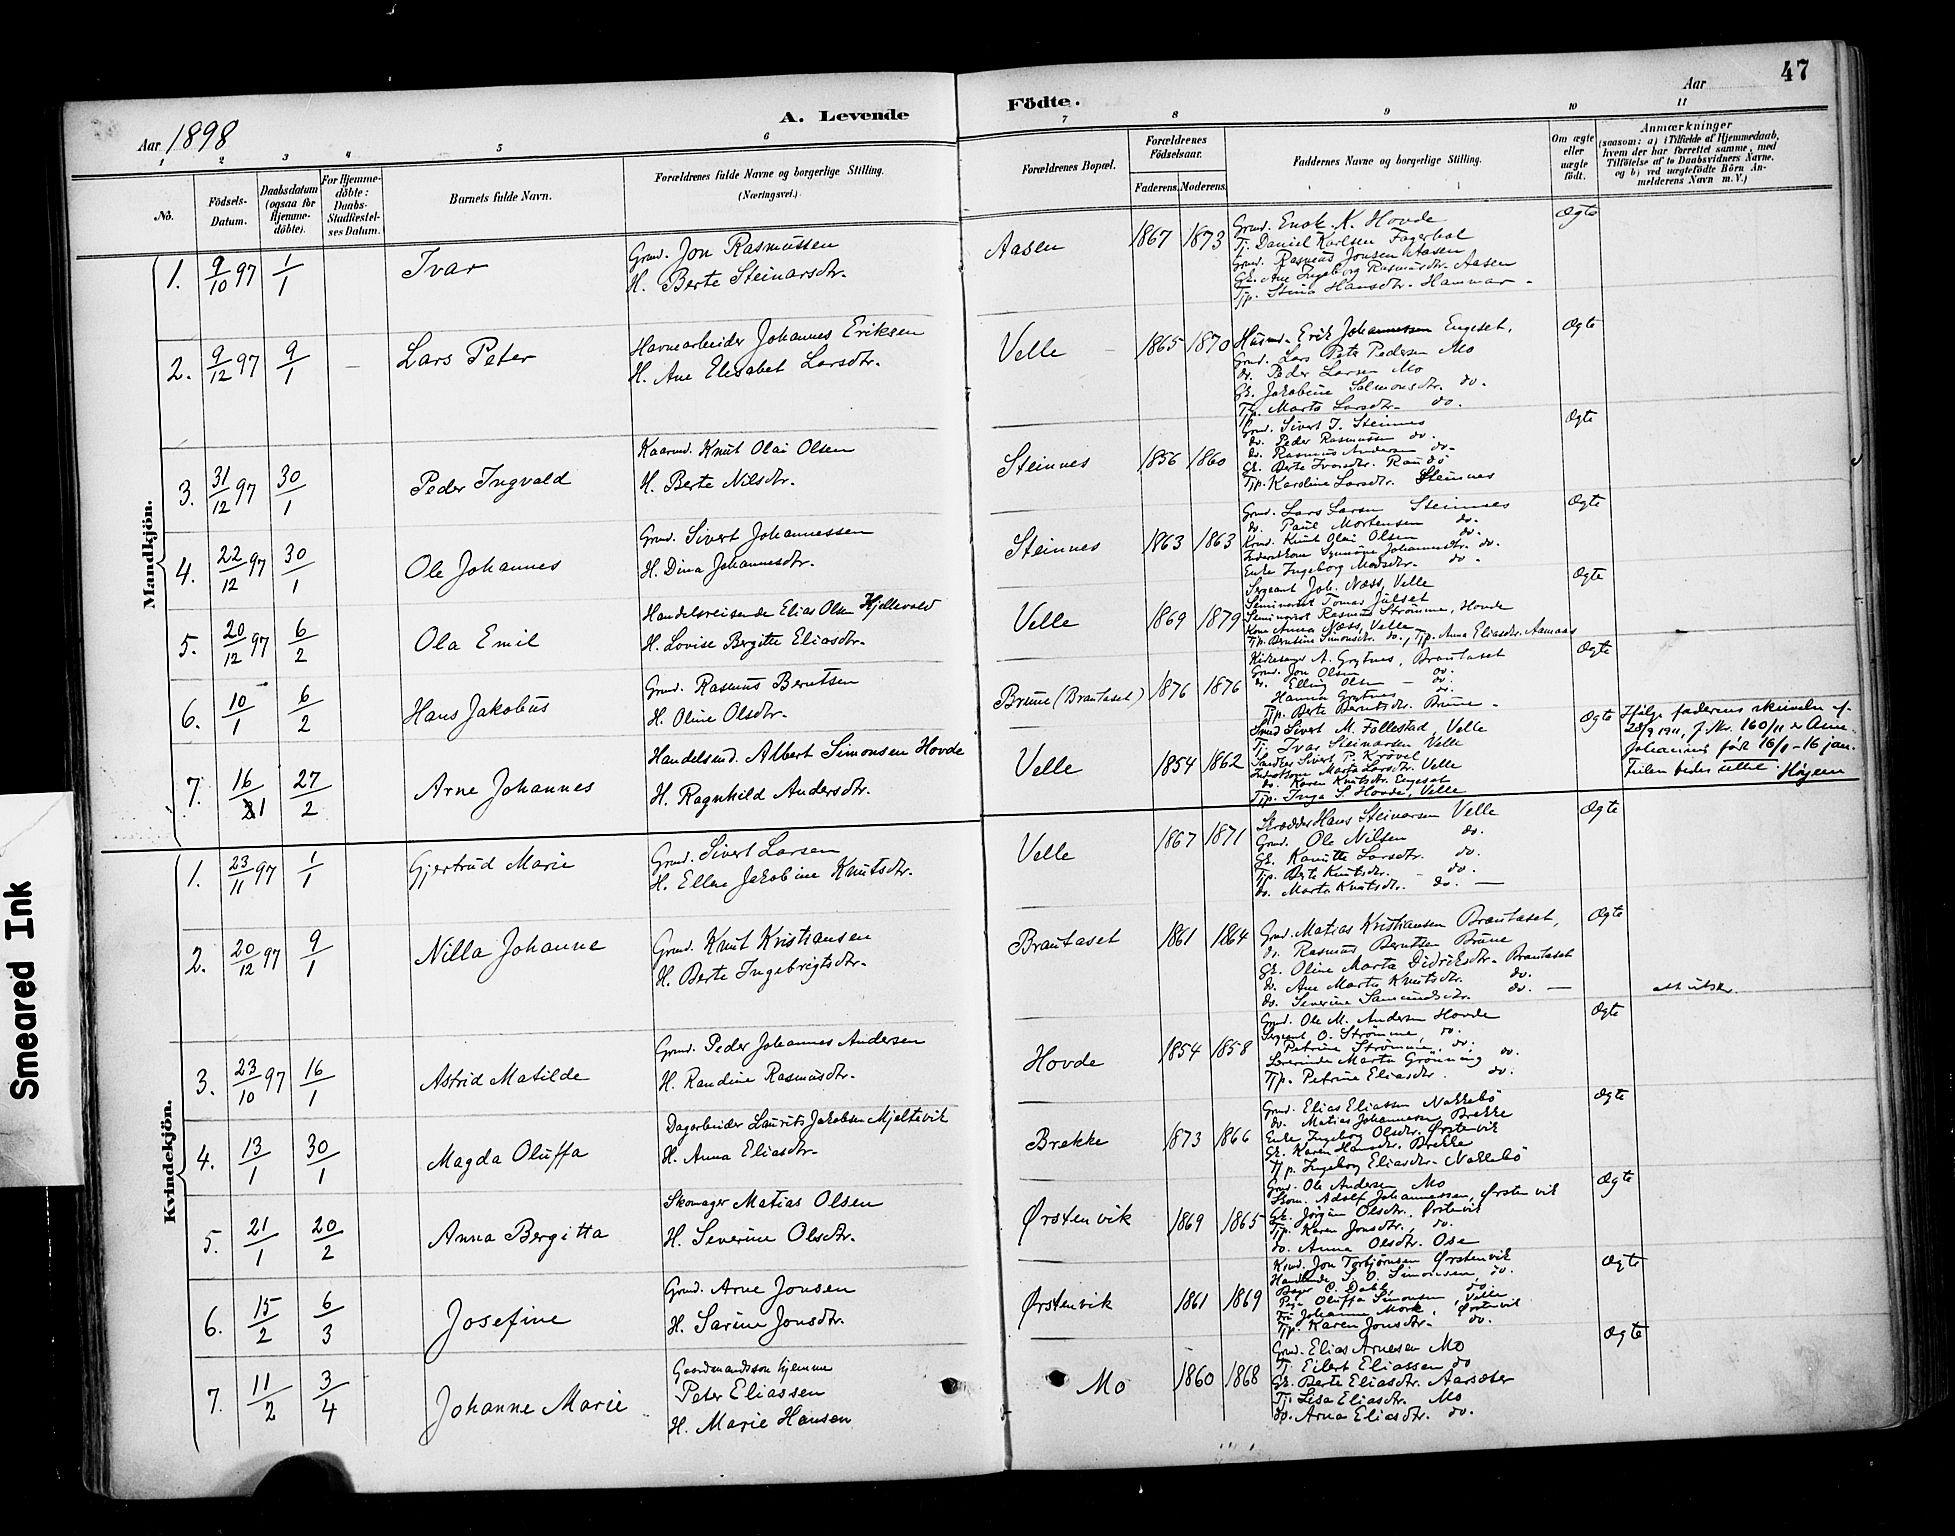 47
Aar 1898
A. Levende
Födte.
Aar
1 2 3 4 5 6 7 8 9 10 11
No.
Födsels-Datum.
Daabsdatum (ogsaa for Hjemme-döbte).
For Hjemme-döbte: Daabs-Stadfæstel-ses Datum.
Barnets fulde Navn.
Forældrenes fulde Navne og borgerlige Stilling. (Næringsvei.)
Forældrenes Bopæl.
Forældrenes Födselsaar.
Faderens. Moderens.
Faddernes Navne og borgerlige Stilling.
Om ægte eller uægte födt.
Anmærkninger (saasom: a) i Tilfælde af Hjemmedaab, hvem der har forrettet samme, med Tilföielse af to Daabsvidners Navne, og b) ved uægtefödte Börn An-melderens Navn m. V.)
Mandkjön.
1. 9/10 97 1/1 Ivar
Grmd. Jon Rasmussen
H. Berte Steinarsdtr.
Aasen 1867 1873
Grmd. Enok K. Hovde
Tj. Daniel Karlsen Fagerhol
Grmd. Rasmus Jonsen Aasen
Gk. Ane Ingeborg Rasmusdtr. Aasen
Tjp. Stina Hansdtr. Hammar
Ægte
2. 9/12 97 9/1 – Lars Peter
Havnearbeider Johannes Eriksen
H. Ane Elesabet Larsdtr.
Velle 1865 1870
Husmd. Erik Johannessen Engeset,
Grmd. Lars Peter Pedersen Mo
do. Peder Larsen Mo
Gk. Jakobine Salmonsdtr. do.
Tjp. Marta Larsdtr. do.
Ægte
3. 31/12 97 30/1 Peder Ingvald
Kaarmd. Knut Olai Olsen
H. Berte Nilsdtr.
Steinnes 1856 1860
Grmd. Sivert J. Steinnes
do. Peder Rasmussen do.
do. Rasmus Andersen do.
Gk. Berte Ivarsdtr. Raudö
Tjp. Karoline Larsdtr. Steinnes
Ægte
4. 22/12 97 30/1 Ole Johannes
Grmd. Sivert Johannessen
H. Dina Johannesdtr.
Steinnes 1863 1863
Grmd. Lars Larsen Steinnes
do. Paul Mortensen do.
Krmd. Knut Olai Olsen do.
Inderstkone Synnöve Johannesdtr. do.
Enke Ingeborg Madsdtr. do.
Ægte
5. 20/12 97 6/2 Ola Emil
Handelsreisende Elias Olsen Kjellevold
H. Lovise Bergitte Eliasdtr.
Velle 1869 1879
Sergeant Joh. Næss, Velle
Seminarist Tomas Julset
Seminarist Rasmus Strömme, Hovde
Kone Anna Næss, Velle
Tjp. Berntine Simonsdtr. do., Tjp. Anna Eliasdtr. Aamaas
Ægte
6. 10/1 6/2 Hans Jakobus
Grmd. Rasmus Berntsen
H. Oline Olsdtr.
Brune (Brautaset) 1876 1876
Kirkesanger A. Grytnes, Brautaset
Grmd. Jon Olsen do.
do. Elling Olsen do.
Hanna Grytnes do.
Tjp. Berte Berntsdtr. Brune
Ægte
7. 16/1 27/2 Arne Johannes
Handelsmd. Albert Simonsen Hovde
H. Ragnhild Andersdtr.
Velle 1854 1862
Smed Sivert M. Follestad, Velle
Tj. Ivar Steinarsen Velle
Sandker Sivert P. Krövel
Inderstkone Marta Larsdtr. Velle
do. Karen Knutsdtr. Engeset
Tjp. Inga S. Hovde, Velle
Ægte
Ifølge faderens skrivelse af
28/9 1911, j. nr. 160/11 er Arne
Johannes født 16/1 – 16 jan.
Feilen bedes rettet. Høyem
Kvindekjön.
1. 23/11 97 1/1 Gjertrud Marie
Grmd. Sivert Larsen
H. Ellen Jakobine Knutsdtr.
Velle 1867 1871
Skrædder Hans Steinarsen Velle
Grmd. Ole Nilsen do.
Gk. Kanutte Larsdtr. do.
Tjp. Berte Knutsdtr. do.
do. Marta Knutsdtr. do.
Ægte
2. 20/12 97 9/1 Nilla Johanne
Grmd. Knut Kristiansen
H. Berte Ingebrigtsdtr.
Brautaset 1861 1864
Grmd. Matias Kristiansen Brautaset,
do. Rasmus Berntsen Brune
Gk. Oline Marta Didriksdtr. Brautaset
do. Ane Marta Knutsdtr. do.
do. Severine Samundsdtr. do.
Ægte
att. utskr.
3. 23/10 97 16/1 Astrid Matilde
Grmd. Peder Johannes Andersen
H. Randine Rasmusdtr.
Hovde 1854 1858
Grmd. Ole M. Andersen Hovde
Sergeant O. Strömme, do.
Petrine Strömme, do.
Lærerinde Marta Grönning do.
Tjp. Petrine Eliasdtr. do.
Ægte
4. 13/1 30/1 Magda Oluffa
Dagarbeider Laurits Jakobsen Mjeltevik
H. Anna Eliasdtr.
Brekke 1873 1866
Grmd. Elias Eliassen Nakkebö
do. Matias Johannessen Brekke
Enke Ingeborg Olsdtr. Ørstenvik
Gk. Karen Hansdtr. Brekke
Tjp. Ingeborg Eliasdtr. Nakkebö
Ægte
5. 21/1 20/2 Anna Bergitta
Skomager Matias Olsen
H. Severine Olsdtr.
Ørstenvik 1869 1865
Grmd. Ole Andersen Mo
Skom. Adolf Johannessen, Ørstenvik
Gk. Jörgine Olsdtr. Ørstenvik
Tjp. Karen Jonsdtr, do.
do. Anna Olsdtr. Ose
Ægte
6. 15/2 6/3 Josefine
Grmd. Arne Jonsen
H. Sarine Jonsdtr.
Ørstenvik 1861 1869
Krmd. Jon Torbjörnsen Ørstenvik
Handlende S. O. Simonsen, do.
Bager C. Dahl, do.
Pige Oluffa Simonsen, Velle
Fru Johanne Mork, Ørstenvik
Tjp. Karen Jonsdtr. do.
Ægte
7. 11/2 3/4 Johanne Marie
Gaardmandsson hjemme
Peter Eliassen
H. Marie Hansen
Mo 1860 1868
Grmd. Elias Arnesen Mo
Tj. Eilert Eliassen do
Gk. Berte Eliasdtr. Aarsæter
Tj. Lisa Eliasdtr. Mo
do. Arna Eliasdtr. do.
Ægte
Smeared Ink